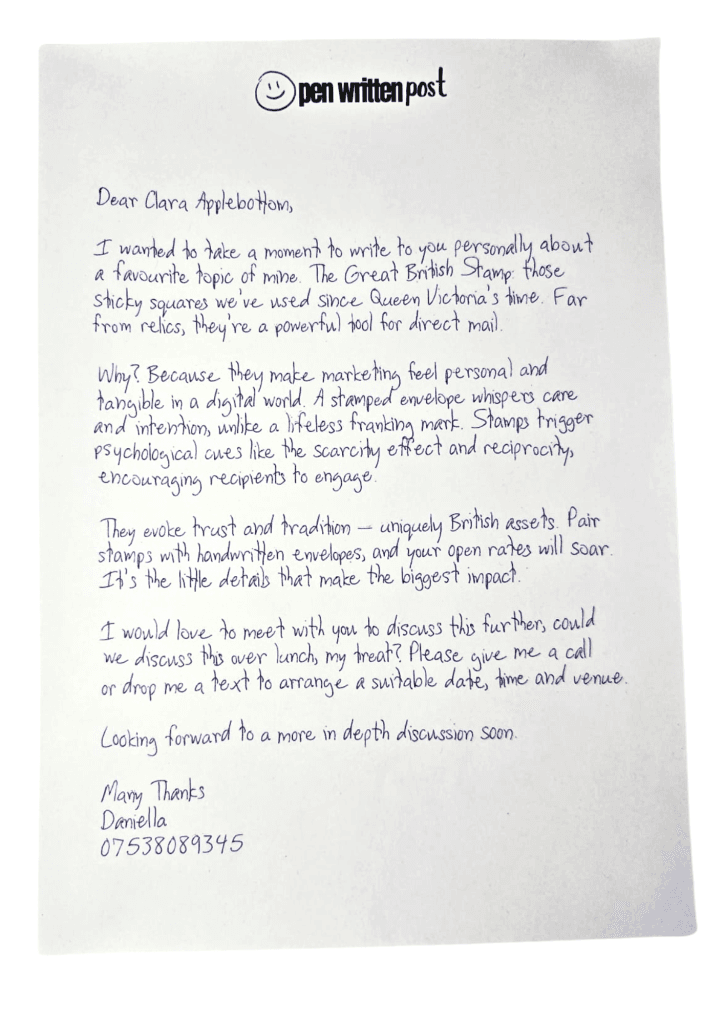 pen written post
Dear Clara Applebottom,
I wanted to take a moment to write to you personally about
a favourite topic of mine. The Great British Stamp: those
sticky squares we've used since Queen Victoria's time. Far
from relics, they're a powerful tool for direct mail.
Why? Because they make marketing feel personal and
tangible in a digital world. A stamped envelope whispers care
and intention, unlike a lifeless franking mark. Stamps trigger
psychological cues like the scarcity effect and reciprocity,
encouraging recipients to engage.
They evoke trust and tradition – uniquely British assets. Pair
stamps with handwritten envelopes, and your open rates will soar.
It's the little details that make the biggest impact.
I would love to meet with you to discuss this further, could
we discuss this over lunch, my treat? Please give me a call
or drop me a text to arrange a suitable date, time and venue.
Looking forward to a more in depth discussion soon.
Many Thanks
Daniella
07538089345